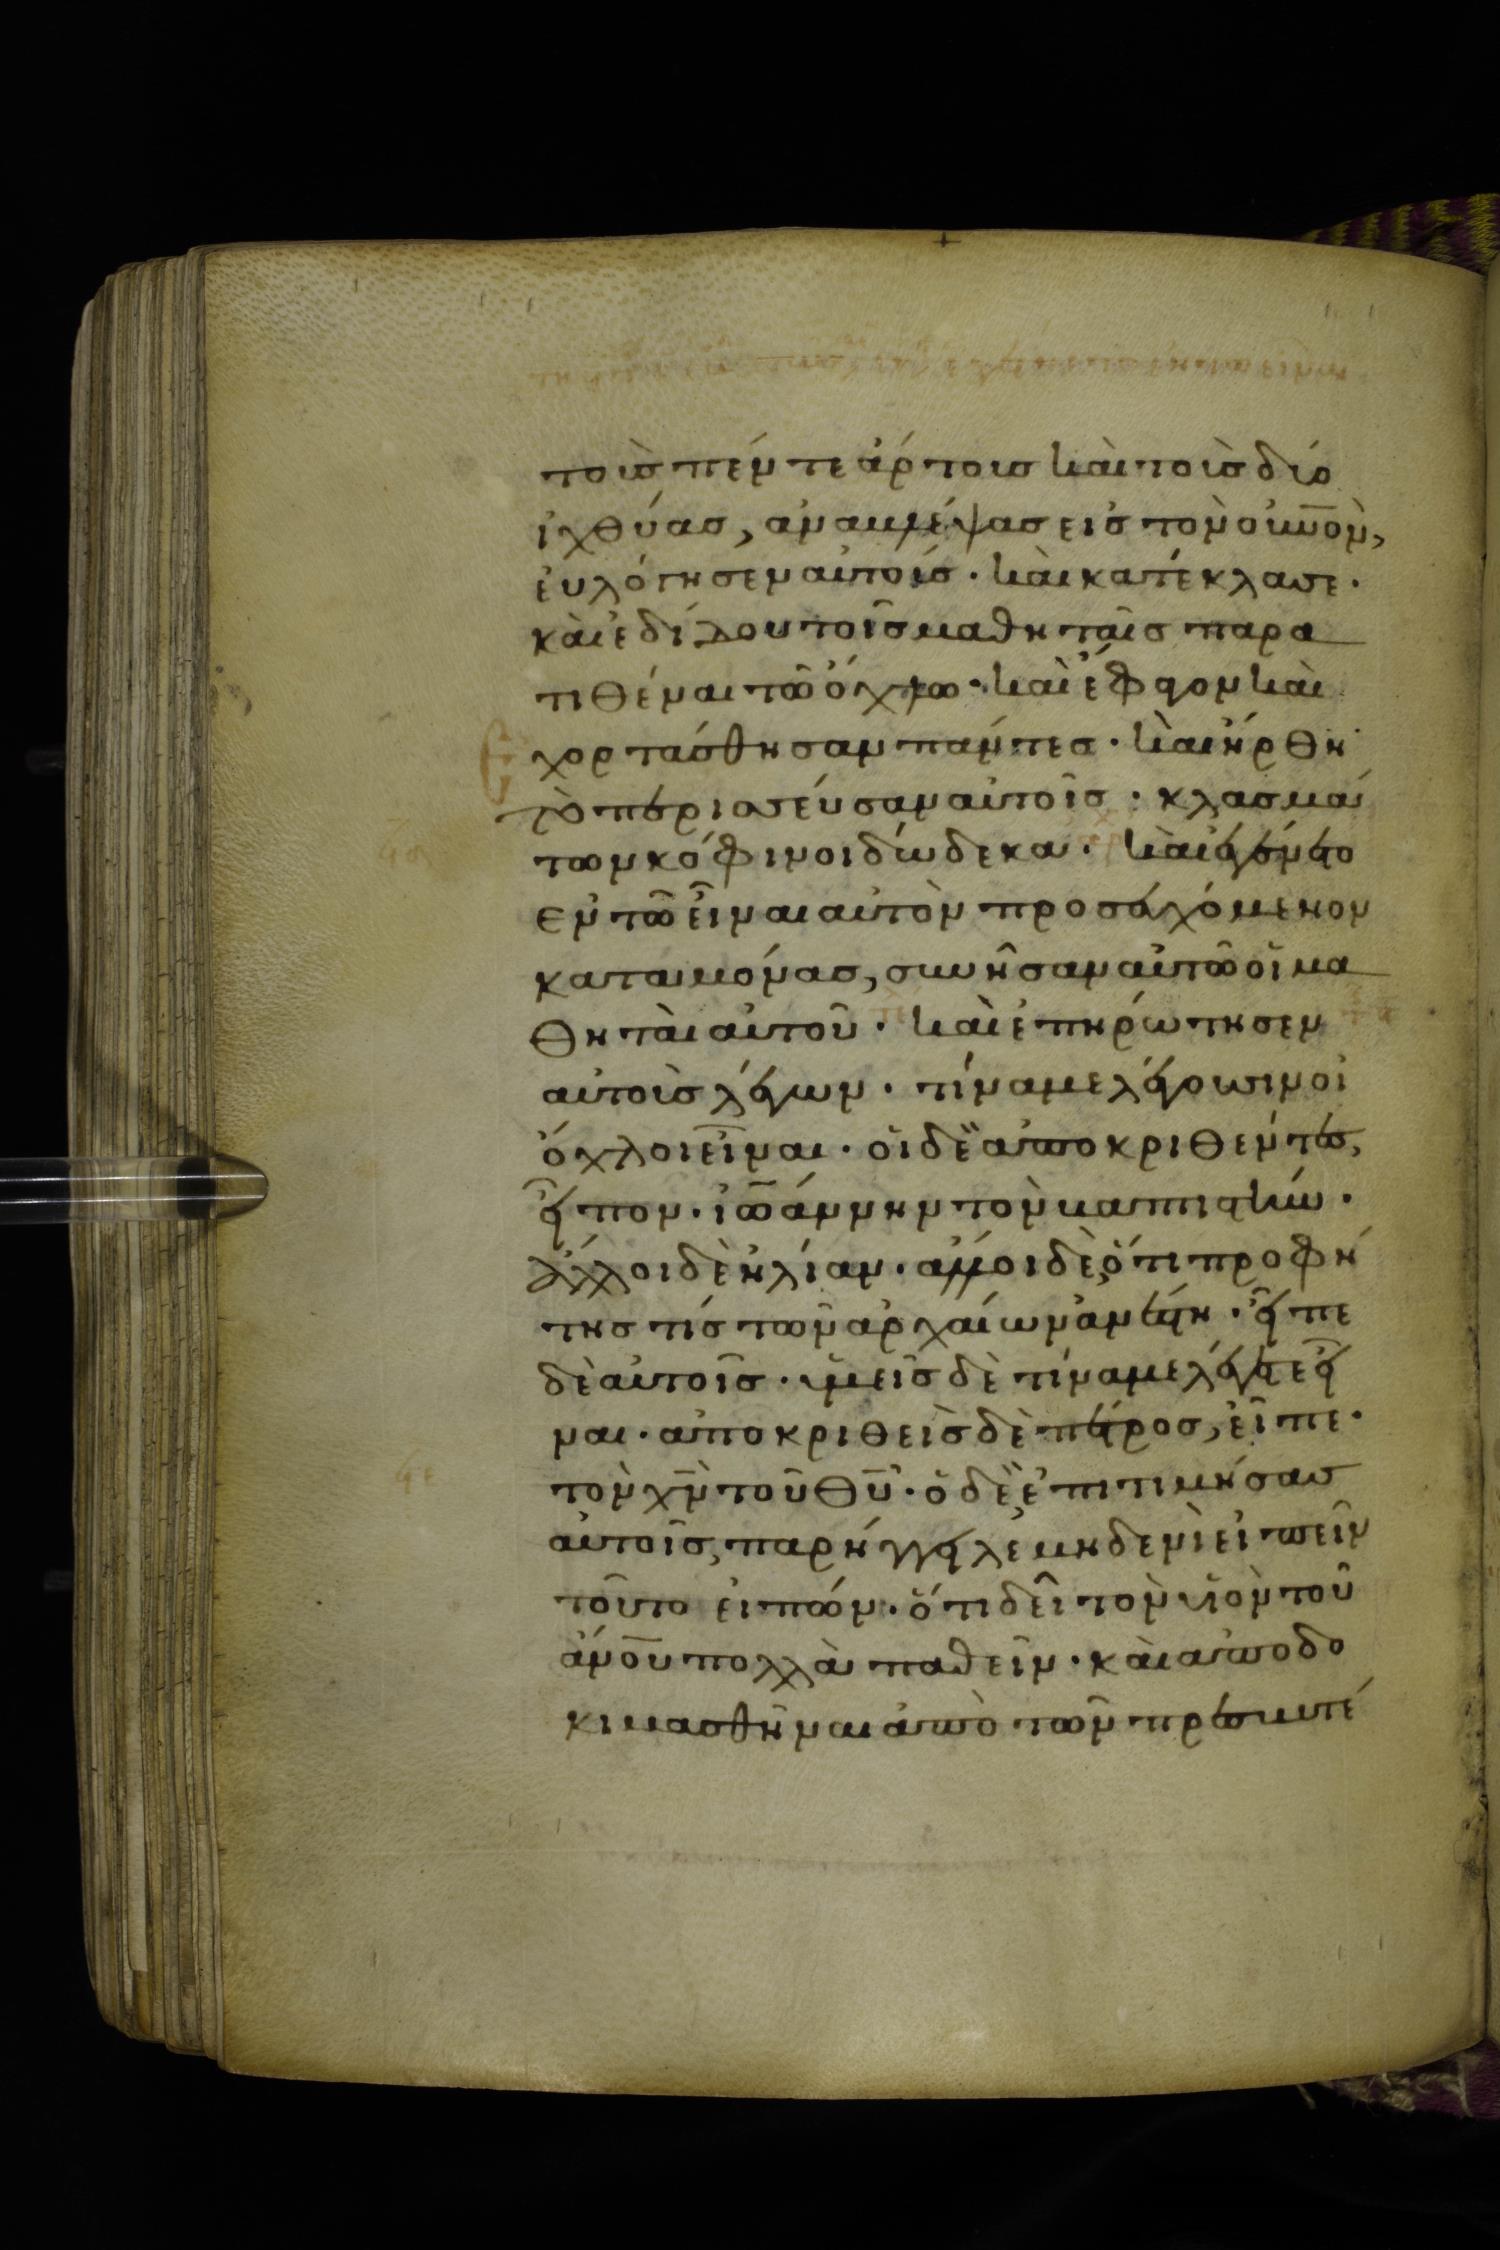 τοὺσ πέντε ἄρτουσ καὶ τοὺσ δύο
ἰχθύασ, ἀναβλέψασ εἰσ τὸν οὐ̅νο̅ν,
ἐυλόγησεν αὐτούσ · καὶ κατέκλασε ·
καὶ ἐδίδου τοῖσ μαθηταῖσ παρα
τιθέναι τῶ ὄχλω · καὶ ἔφαγον καὶ
ἐχορτάσθησαν πάντεσ · καὶ ἤρθη
τὸ περισσεύσαν αὐτοῖσ · κλασμά
των κόφινοι δώδεκα · καὶ ἐγένετο
ἐν τῶ εἶναι αὐτὸν προσευχόμενον
καταμόνασ, συνῆσαν αὐτῶ οἱ μα
θηταὶ αὐτοῦ · καὶ ἐπηρώτησεν
αὐτοὺσ λέγων · τίνα με λέγουσιν οἱ
ὄχλοι εἶναι · οἱ δὲ ἀποκριθέντεσ,
εἶπον · ἰωάννην τὸν βαπτιστήν ·
ἄλλοι δὲ ἠλίαν · ἄλλοι δὲ ὅτι προφή
τησ τίσ τῶν ἀρχαίων ἀνέστη · εἶπε
δὲ αὐτοῖσ · ὑμεῖσ δὲ τίνα με λέγετε εἶ
ναι · ἀποκριθεὶσ δὲ πέτροσ, εἶπε ·
τὸν χ̅ν τοῦ θ̅υ · ὁ δὲ ἐπιτιμήσασ
αὐτοῖσ, παρήγγειλε μηδενὶ εἰπεῖν
τοῦτο εἰπών · ὅτι δεῖ τὸν υἱὸν τοῦ
ἀν̅ου πολλὰ παθεῖν · καὶ ἀποδο
κιμασθῆναι ἀπὸ τῶν πρεσβυτέ